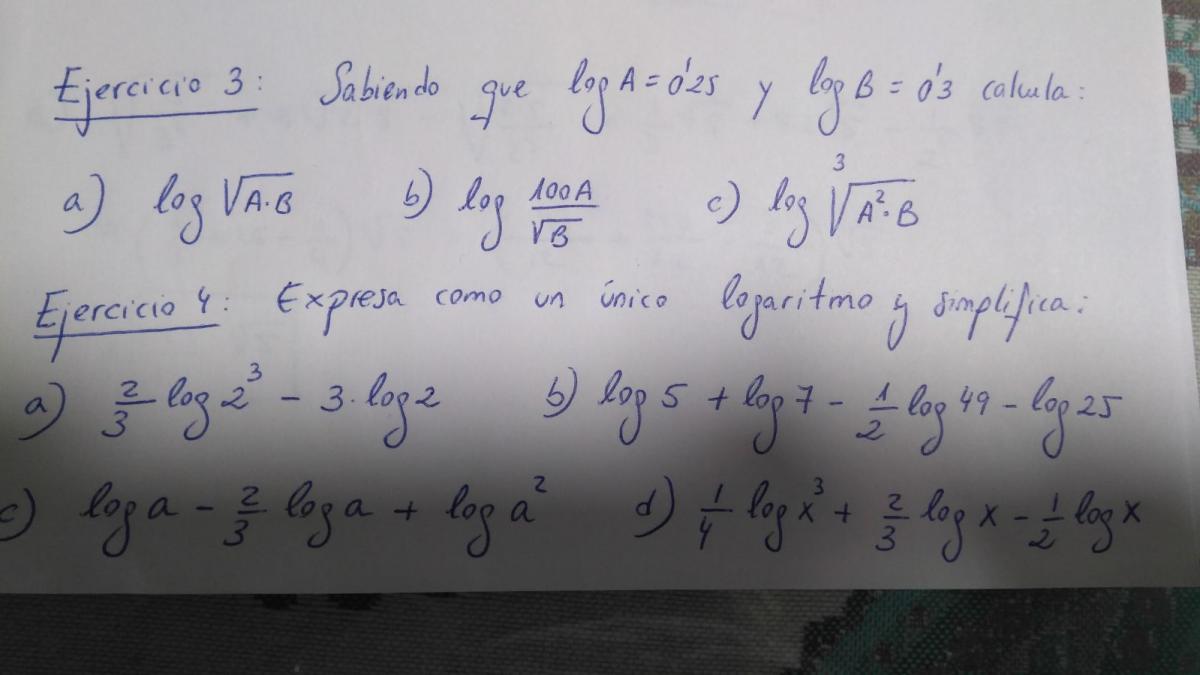 Ejercicio 3: Sabiendo que log A = 0'25 y log B = 0'3 calcula:
a) log √(A·B) b) log 100A/√B c) log ³√(A²·B)
Ejercicio 4: Expresa como un único logaritmo y simplifica:
a) 2/3 log 2³ - 3·log 2 b) log 5 + log 7 - 1/2 log 49 - log 25
c) log a - 2/3 log a + log a² d) 1/4 log x³ + 2/3 log x - 1/2 log x